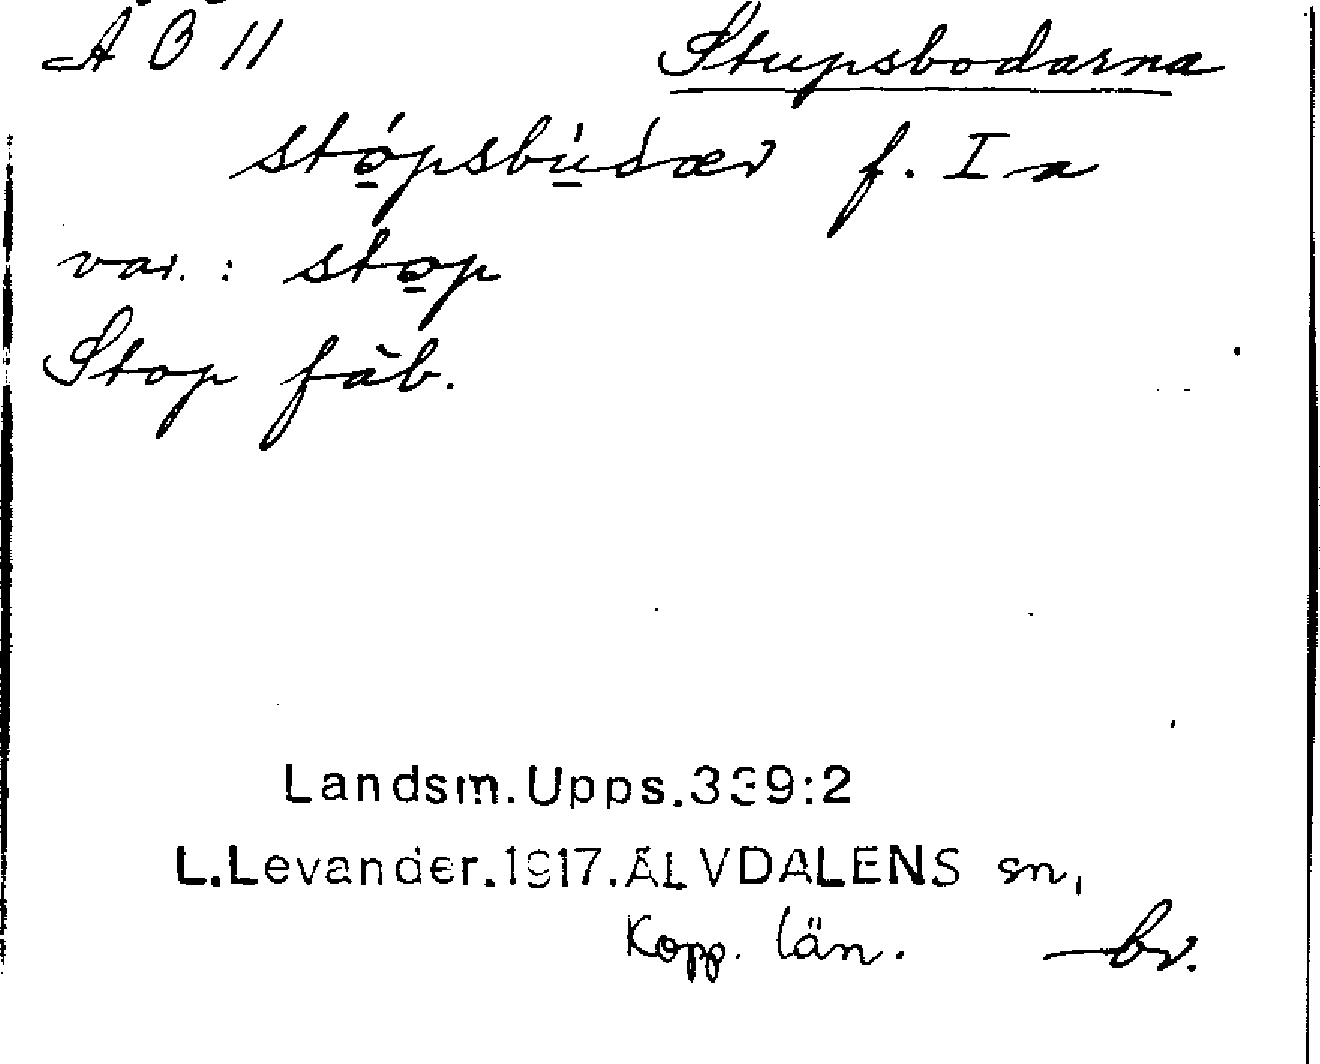 Ä Ö 11 Stupsbodarna
stó̲psbù̲dær f. I a
var. : sto̲p
Stop fäb.
Landsm.Upps.339:2
L.Levander.1917.ÄLVDALENS sn,
Kopp. län. br.